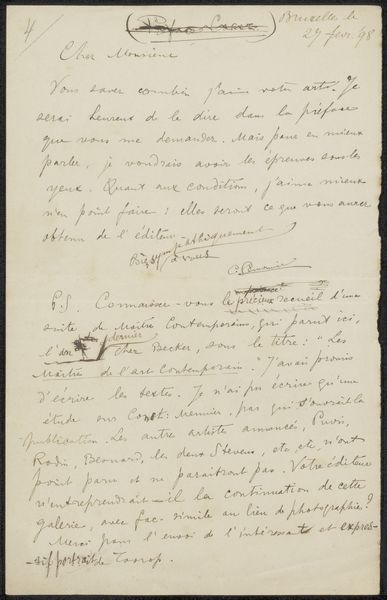 4
Bruxelles le
27 févr. 98
Cher Monsieur
Vous savez combien j'aime votre art. Je
serai heureux de le dire dans la préface
que vous me demandez. Mais pour en mieux
parler, je voudrais avoir les épreuves sous les
yeux. Quant aux condition, j'aime mieux
n'en point faire : elles seront ce que vous aurez
obtenu de l'éditeur.
Bien sympathiquement
à vous
P.S. Connaissez-vous le précieux recueil d'une
suite de Maîtres Contemporains, qui parut ici,
l'an dernier
chez Becker, sous le titre : "Les
Maîtres de l'art Contemporain." J'avais promis
d'écrire les textes. Je n'ai pu écrire qu'une
étude sur Const. Meunier, par qui s'ouvrait la
publication. Les autres artistes annoncés, Puvis,
Rodin, Besnard, les deux Stevens, etc, etc, n'ont
point paru et ne paraîtront pas. Votre éditeur
n'entreprendrait-il la continuation de cette
galerie, avec fac-simile au lieu de photographie?
Merci pour l'envoi de l'intéressant et expres-
sif portrait de Toorop.